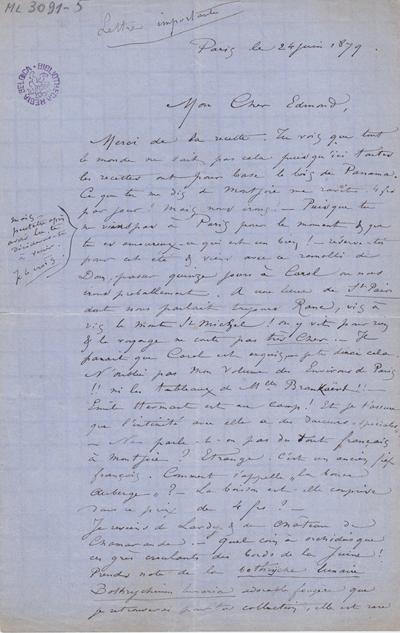 ML 3091-5
Lettre importante
BIBLIOTHECA REGIA BELGICA
Paris le 24 juin 1879.
Mon Cher Edmond,
Merci de la recette. Tu vois que tout
le monde ne sait pas cela puisqu'ici toutes
les recettes ont pour base le bois de Panama.
Ce que tu me dis de Montjoie me ravit. 4 frs
par jour! Mais nous irons – Puisque tu
ne viendras pas à Paris pour le moment & que
tu es amoureux ce qui est un bien! – réserve toi
pour cet été & viens avec ce ramolli de
Dom. passer quinze jours à Carol où nous
irons probablement. A une lieue de St Pair
dont nous parlait toujours Rane, vis à
vis le mont St Michel! on y vit pour rien
& le voyage ne coute pas très cher – Il
parait que Carol est exquis
N'oublie pas mon volume des Environs de Paris
!! ni les tableaux de Mlle Brankaërt!!
Emile Hermant est au camp! Et je t'assure
que l'intimité avec elle a des douceurs spéciales
– Ne parle-t-on pas du tout français
à Montjoie? Etrange. c'est un ancien fief
français. Comment s'appelle "la bonne
Auberge"? – La boisson est-elle comprise
dans ce prix de 4 frs? –
Je reviens de Lardy & du château de
Chamarande. – Quel coin à orchidées que
ces grès croulants des bords de la Juine!
Prendre note de la botryche lunaire
Botrychium lunaria adorable fougère que
je retrouverai pour ta collection, elle est rare
mais
peut-être